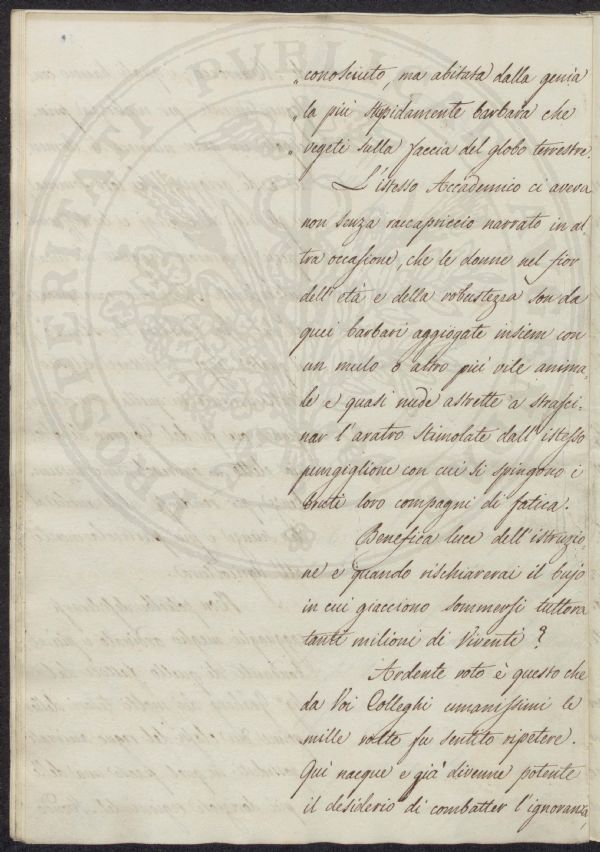 „ conosciuto, ma abitata dalla genìa
„ la più stupidamente barbara che
„ vegeti sulla faccia del globo terrestre.
L'istesso Accademico ci aveva
non senza raccapriccio narrato in al
tra occasione, che le donne nel fior
dell'età e della robustezza son da
quei barbari aggiogate insiem con
un mulo o altro più vile anima-
le e quasi nude astrette a strasci-
nar l'aratro stimolate dall'istesso
pungiglione con cui si spingono i
bruti loro compagni di fatica.
Benefica luce dell'istruzio-
ne e quando rischiarerai il bujo
in cui giacciono sommersi tuttora
tanti milioni di Viventi?
Ardente voto è questo che
da Voi Colleghi umanissimi le
mille volte fu sentito ripetere.
Quì nacque e già divenne potente
il desiderio di combatter l'ignoranza,
PROSPERITATI PUBLICAE